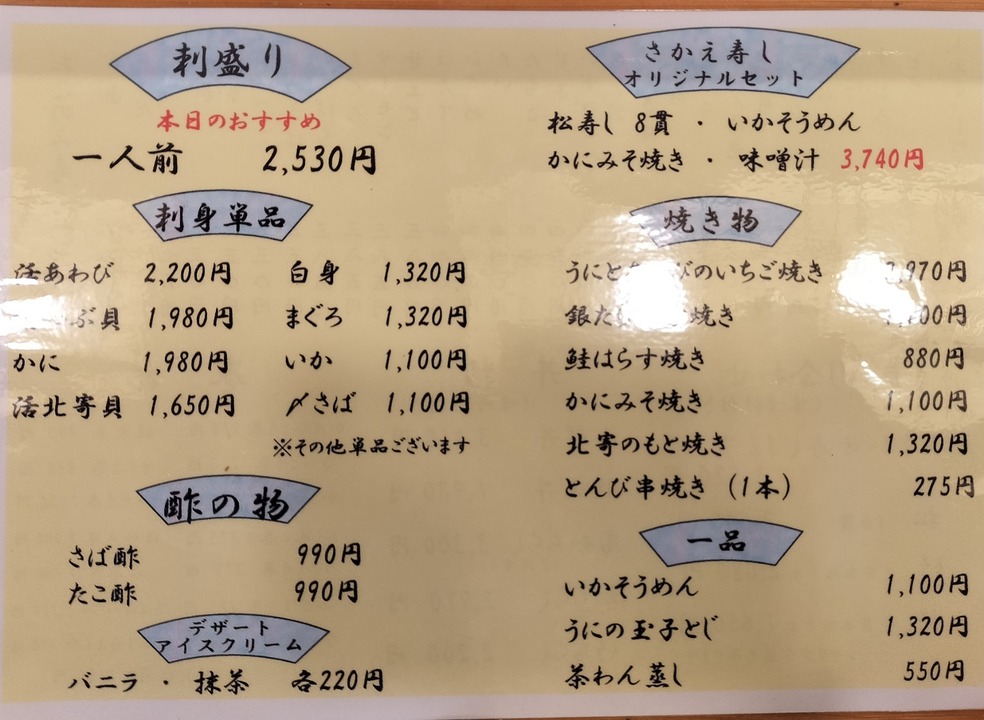 刺盛り
本日のおすすめ
一人前 2,530円
刺身単品
活あわび 2,200円 白身 1,320円
ぶ貝 1,980円 まぐろ 1,320円
かに 1,980円 いか 1,100円
活北寄貝 1,650円 〆さば 1,100円
※その他単品ございます
酢の物
さば酢 990円
たこ酢 990円
デザート
アイスクリーム
バニラ ・ 抹茶 各220円
さかえ寿し
オリジナルセット
松寿し 8貫 ・ いかそうめん
かにみそ焼き ・ 味噌汁 3,740円
焼き物
うにと びのいちご焼き ,970円
銀だ 焼き 00円
鮭はらす焼き 880円
かにみそ焼き 1,100円
北寄のもと焼き 1,320円
とんび串焼き (1本) 275円
一品
いかそうめん 1,100円
うにの玉子とじ 1,320円
茶わん蒸し 550円